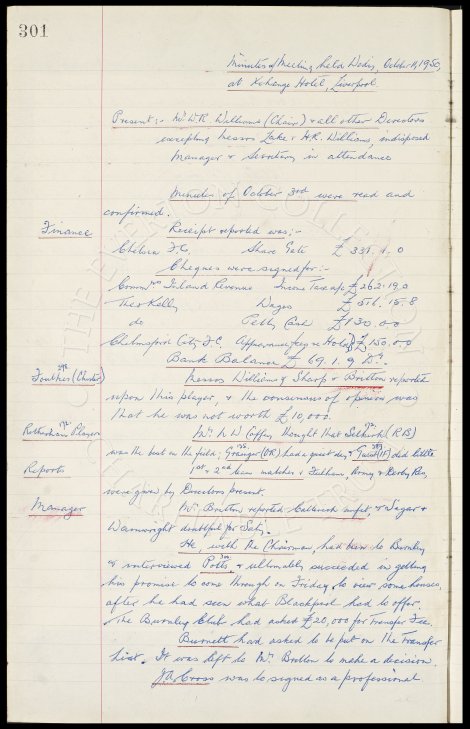 301
Minutes of Meeting held Wedy, October 11, 1950,
at Xchange Hotel, Liverpool
Present:- Mr. W.R. Williams (Chair) & all other Directors
excepting Messrs Zake & H.R. Williams, indisposed
Manager & Secretary in attendance
Minutes of October 3rd were read and
confirmed.
Finance Receipt reported was:-
Chelsea F.C. Share Gate £ 331. . 0
Cheques were signed for:-
Commrs Inland Revenue Income Tax a/c £262.19.0
Theo Kelly Wages £ 511. 15.8
do Petty Cash £130.0.0
Chelmsford City F.C. Appearance fee re £150.0.0
Bank Balance £ 69.1.9 Dr.
Foulkes (Chester) Messrs Williams, Sharp & Britton reported
upon this player, & the consensus of opinion was
that he was not worth £10,000.
Rotherham Player Mr. N W Coffey thought that Selkirk (RB)
was the best on the field; Grainger (OR) had a quiet day, & Guest (IF) did little
Reports 1st & 2nd team matches & Fulham, Army & Derby Res,
were given by Directors present.
Manager Mr. Britton reported Catterick unfit, & Sagar &
Wainwright doubtful for Saty.
He, with the Chairman had been to Burnley
& interviewed Potts, & ultimately succeeded in getting
his promise to come through on Friday to view some houses,
after he had seen what Blackpool had to offer.
The Burnley Club had asked £20,000 for Transfer Fee.
Burnett had asked to be put on the Transfer
List. It was left to Mr. Britton to make a decision.
J.A. Cross was to signed as a professional.